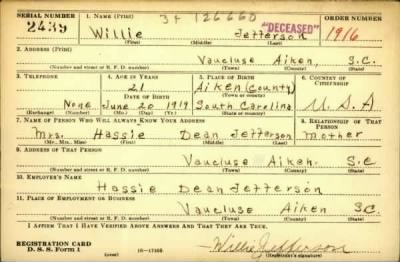 SERIAL NUMBER 1. NAME (Print) 34 126660 "DECEASED" ORDER NUMBER
2439 Willie Jefferson 1916
(First) (Middle) (Last)
2. ADDRESS (Print)
Vaucluse Aiken, S.C.
(Number and street or R. F. D. number) (Town) (County) (State)
3. TELEPHONE 4. AGE IN YEARS 5. PLACE OF BIRTH 6. COUNTRY OF CITIZENSHIP
21 Aiken (County)
DATE OF BIRTH (Town or county)
None June 20 1919 South Carolina U.S.A
(Exchange) (Number) (Mo.) (Day) (Yr.) (State or country)
7. NAME OF PERSON WHO WILL ALWAYS KNOW YOUR ADDRESS 8. RELATIONSHIP OF THAT PERSON
Mrs. Hassie Dean Jefferson Mother
(Mr., Mrs., Miss) (First) (Middle) (Last)
9. ADDRESS OF THAT PERSON
Vaucluse Aiken. S.C
(Number and street or R. F. D. number) (Town) (County) (State)
10. EMPLOYER'S NAME
Hassie Dean Jefferson
11. PLACE OF EMPLOYMENT OR BUSINESS
Vaucluse Aiken S.C.
(Number and street or R. F. D. number) (Town) (County) (State)
I AFFIRM THAT I HAVE VERIFIED ABOVE ANSWERS AND THAT THEY ARE TRUE.
REGISTRATION CARD Willie Jefferson
D. S. S. Form 1 (over) (Registrant's signature)